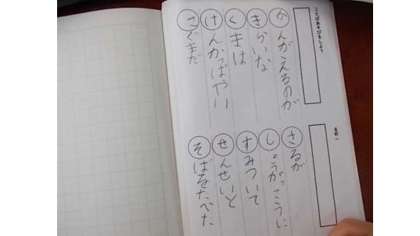 ことばあそびをしよう
かんがえるのが
きらいな
くまは
けんかっぱやい
こぐまだ
さるが
しょうがっこうに
すみついて
せんせいと
そばをたべた